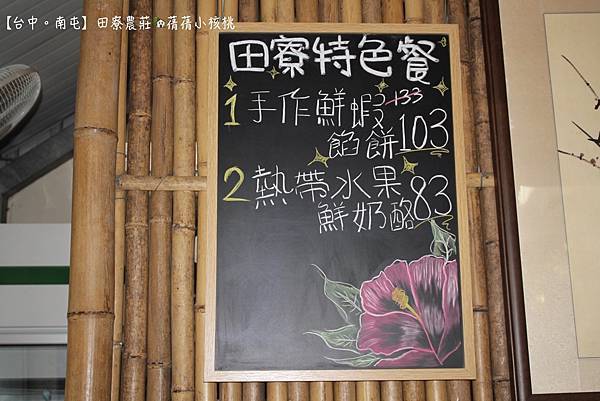 【台中。南屯】田寮農莊ღ蒨蒨小核桃
田寮特色餐
1 手作鮮蝦 133
餡餅 103
2 熱帶水果
鮮奶酪 83